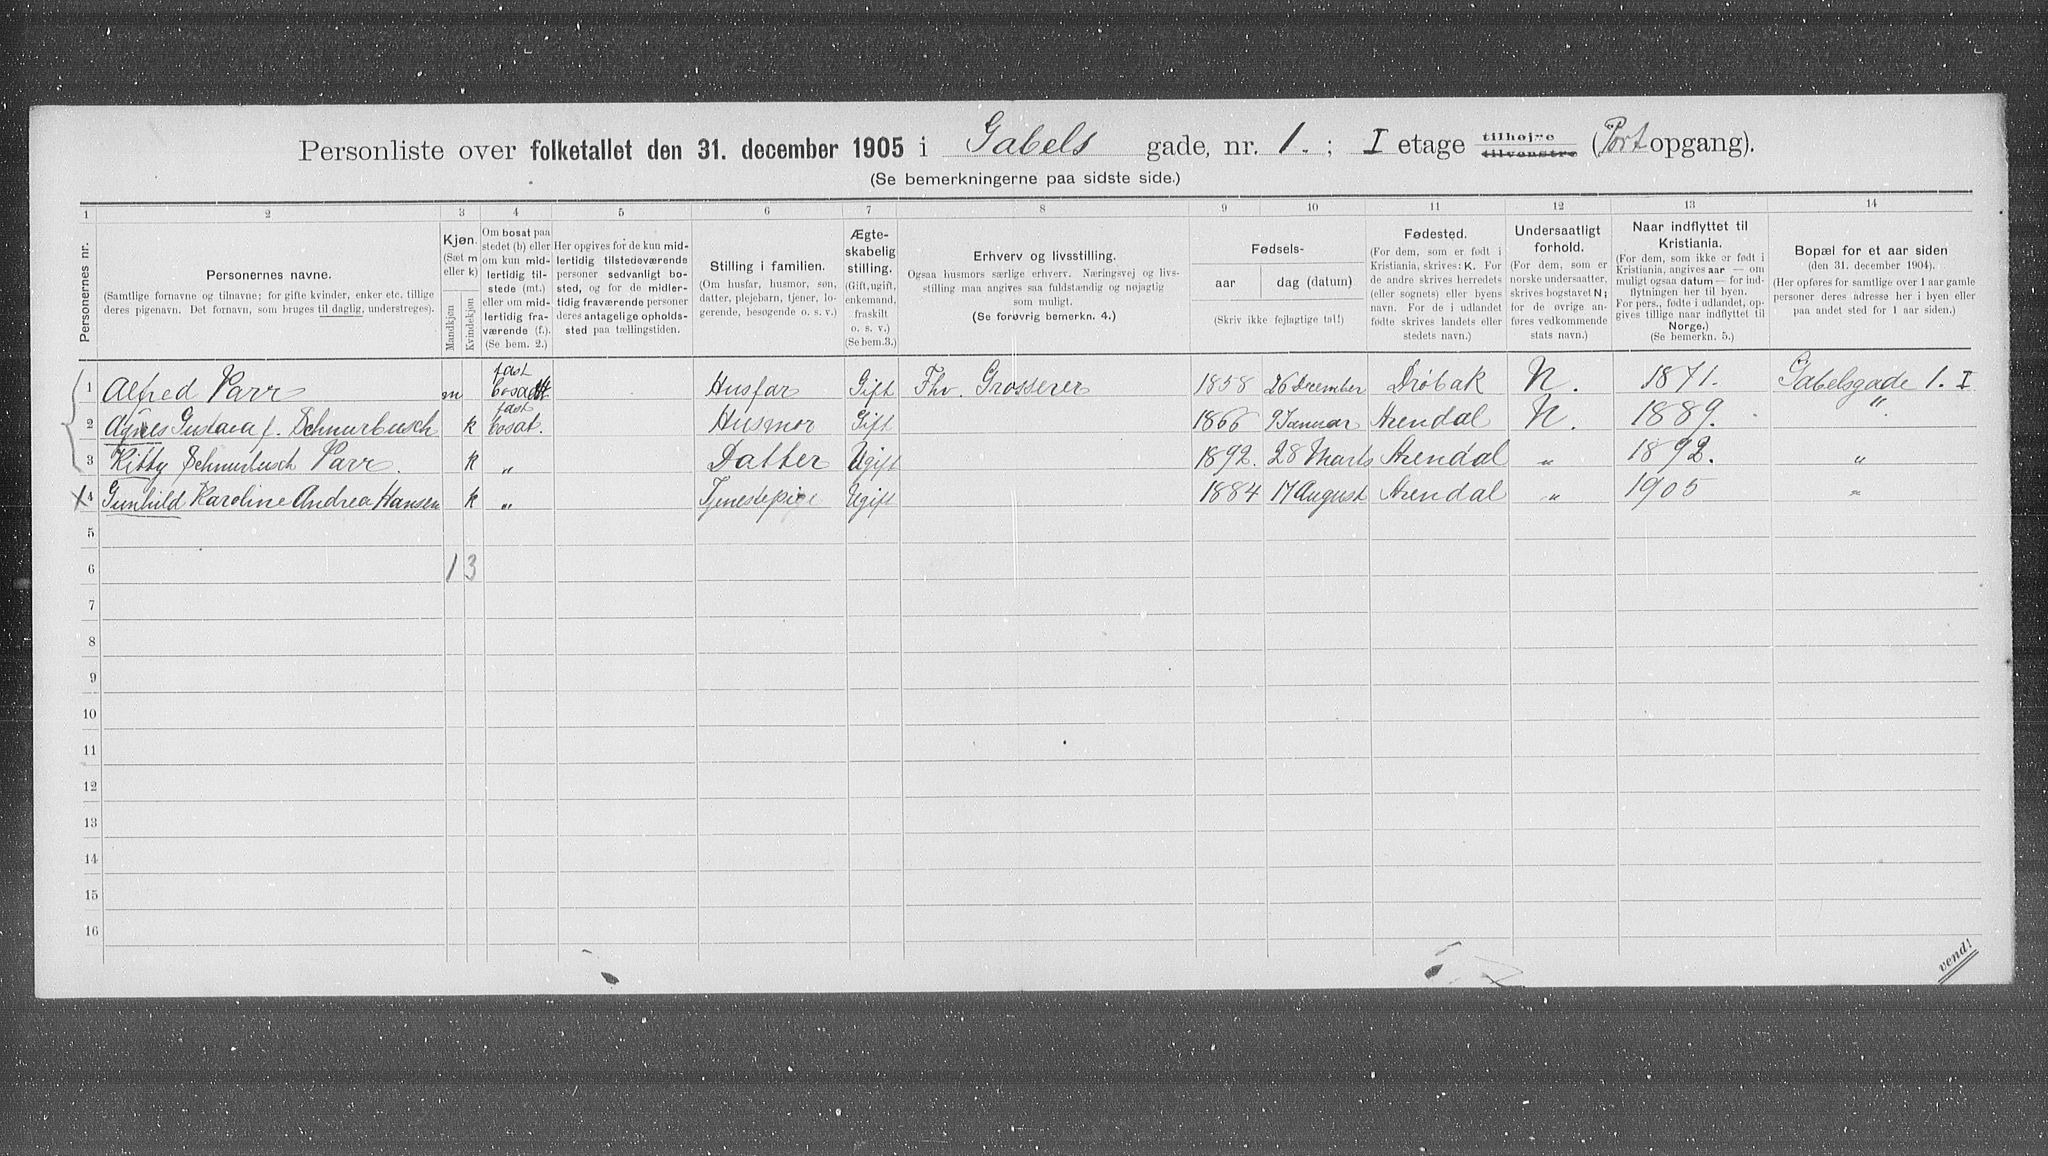 Personliste over folketallet den 31. december 1905 i Gabels gade, nr. 1. ; I etage tilhøjre tilvenstre (Port opgang).
(Se bemerkningerne paa sidste side.)
1 2 3 4 5 6 7 8 9 10 11 12 13 14
Personernes nr.
Personernes navne.
(Samtlige fornavne og tilnavne; for gifte kvinder, enker etc. tillige
deres pigenavn. Det fornavn, som bruges til daglig, understreges).
Kjøn.
(Sæt m
eller k)
Mandkjøn
Kvindekjøn
Om bosat paa
stedet (b) eller
om kun mid-
lertidig til-
stede (mt.)
eller om mid-
lertidig fra-
værende (f.).
(Se bem. 2.)
Her opgives for de kun mid-
lertidig tilstedeværende
personer sedvanligt bo-
sted, og for de midler-
tidig fraværende personer
deres antagelige opholds-
sted paa tællingstiden.
Stilling i familien.
(Om husfar, husmor, søn,
datter, plejebarn, tjener, lo-
gerende, besøgende o. s. v.)
Ægte-
skabelig
stilling.
(Gift, ugift,
enkemand,
fraskilt
o. s. v.)
(Se bem.3.)
Erhverv og livsstilling.
Ogsaa husmors særlige erhverv. Næringsvej og livs-
stilling maa angives saa fuldstændig og nøjagtig
som muligt.
(Se forøvrig bemerkn. 4.)
Fødsels-
aar
dag (datum)
(Skriv ikke fejlagtige tal!)
Fødested.
(For dem, som er født i
Kristiania, skrives: K. For
de andre skrives herredets
(eller sognets) eller byens
navn. For de i udlandet
fødte skrives landets eller
stedets navn.)
Undersaatligt
forhold.
(For dem, som er
norske undersaatter,
skrives bogstavet N;
for de øvrige an-
føres vedkommende
stats navn.)
Naar indflyttet til
Kristiania.
(For dem, som ikke er født i
Kristiania, angives aar — om
muligt ogsaa datum — for ind-
flytningen her til byen.
For pers., fødte i udlandet, op-
gives tillige naar indflyttet til
Norge.)
(Se bemerkn. 5.)
Bopæl for et aar siden
(den 31. december 1904).
(Her opføres for samtlige over 1 aar gamle
personer deres adresse her i byen eller
paa andet sted for 1 aar siden.)
1 Alfred Parr m fast bosatt Husfar Gift Fhv. Grosserer 1858 26 December Drøbak N. 1871. Gabelsgade 1. I
2 Agnes Gustava f. Schnurbusch k fast bosat. Husmor Gift 1866 9 Januar Arendal N. 1889. "
3 Kitty Schnurbusch Parr. k " Datter Ugift 1892. 28 Marts Arendal " 1892. "
X 4 Gunhild Karoline Andrea Hansen k " Tjenestepige Ugift 1884 17 August Arendal " 1905 "
5
6 1 3
7
8
9
10
11
12
13
14
15
16
vend!